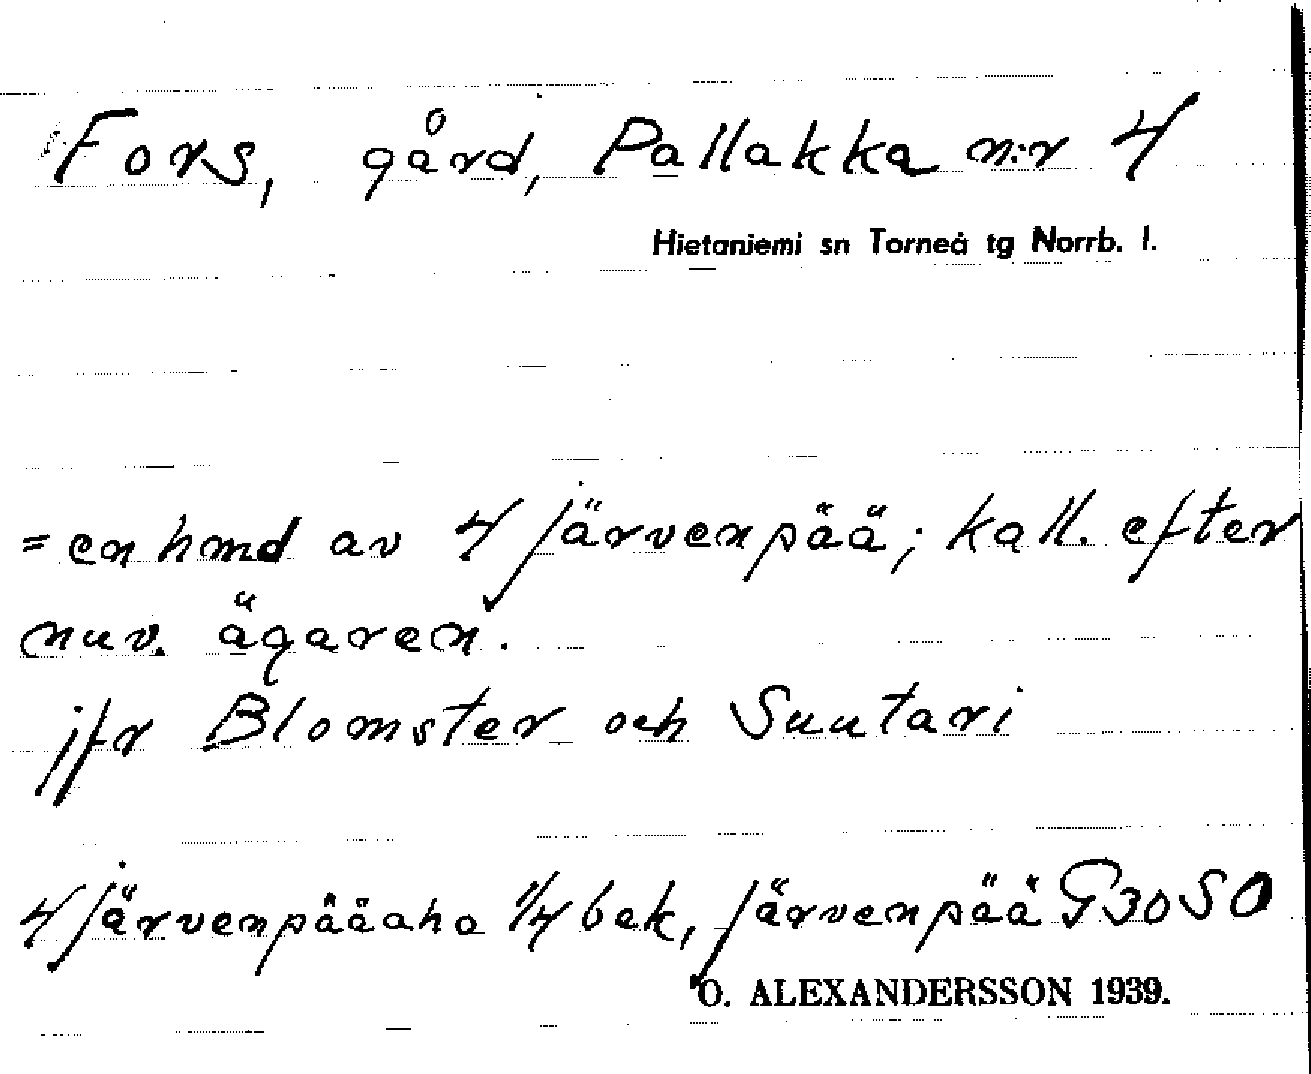 Fors, gård, Pallakka n:r 4
Hietaniemi sn Torneå tg Norrb. l.
= en hmd av 4 Järvenpää; kall. efter
nuv. ägaren.
jfr Blomster och Suutari
4 Järvenpääaho 1/4 bek, Järvenpää G30SO
O. ALEXANDERSSON 1939.